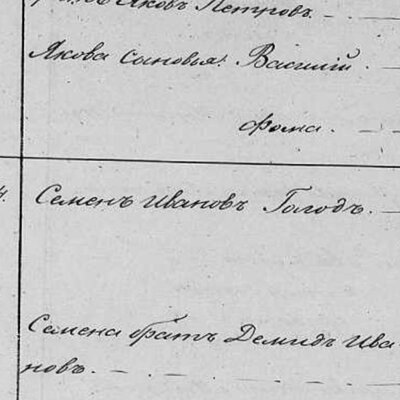 Яковъ Петровъ.
Якова сыновья: Василій.
Фома.
Семенъ Ивановъ Голодъ.
Семена братъ Демидъ Ива
новъ.